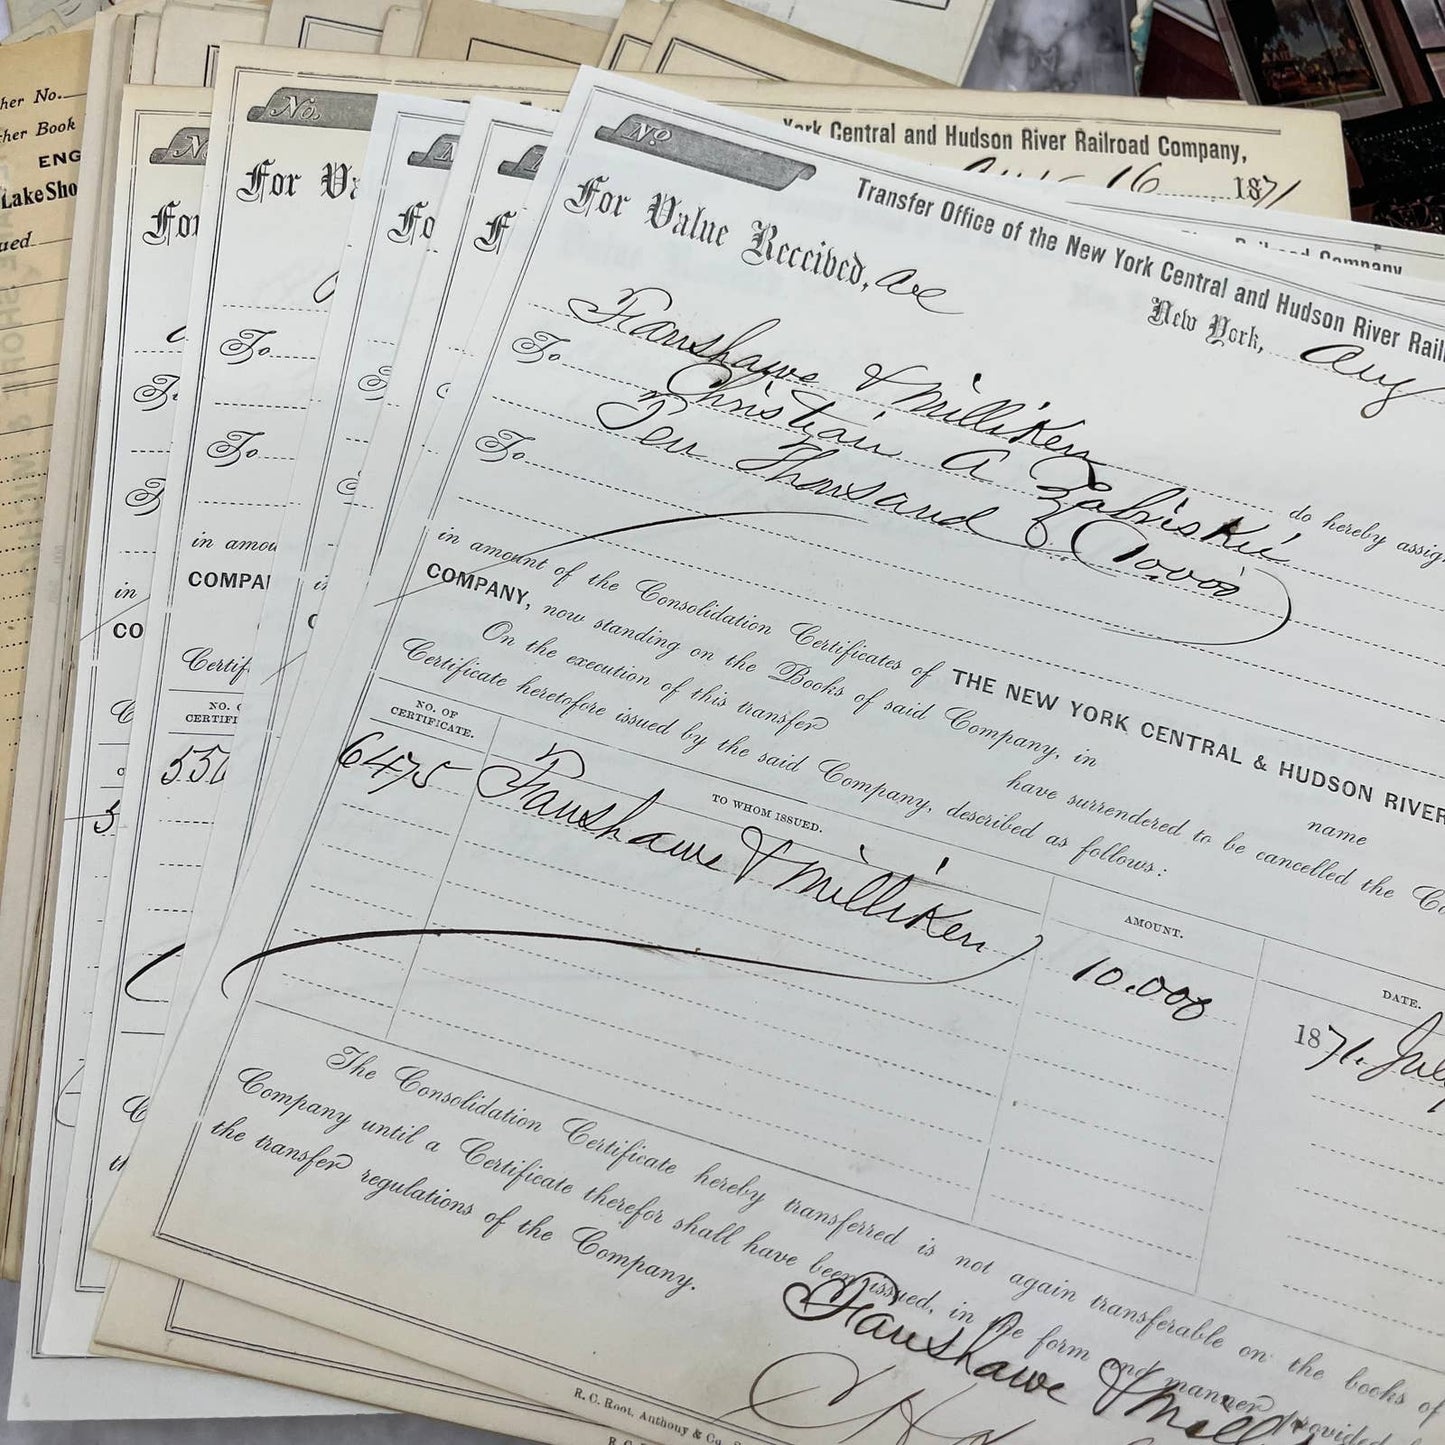 her No.
her Book
ENG
Lake Sho
ued
No.
York Central and Hudson River Railroad Company,
16 1871
Railroad Company
No.
For Va
To
To
in amou
COMPA
Certif
NO. O
CERTIFI
For
in
CO
Fo
F
No.
Transfer Office of the New York Central and Hudson River Rail
For Value Received, we
New York, Aug
Fanshawe & Milliken do hereby assig
To Christian A Zabriskie
To Ten Thousand (10.000)
in amount of the Consolidation Certificates of THE NEW YORK CENTRAL & HUDSON RIVER
COMPANY, now standing on the Books of said Company, in name
On the execution of this transfer have surrendered to be cancelled the C
Certificate heretofore issued by the said Company, described as follows:
NO. OF CERTIFICATE. TO WHOM ISSUED. AMOUNT. DATE.
6475 Fanshawe & Milliken 10.000 1871 July
The Consolidation Certificate hereby transferred is not again transferable on the books of
Company until a Certificate therefor shall have been issued, in the form and manner provided
the transfer regulations of the Company.
Fanshawe & Mill
R. C. Root, Anthony & Co.